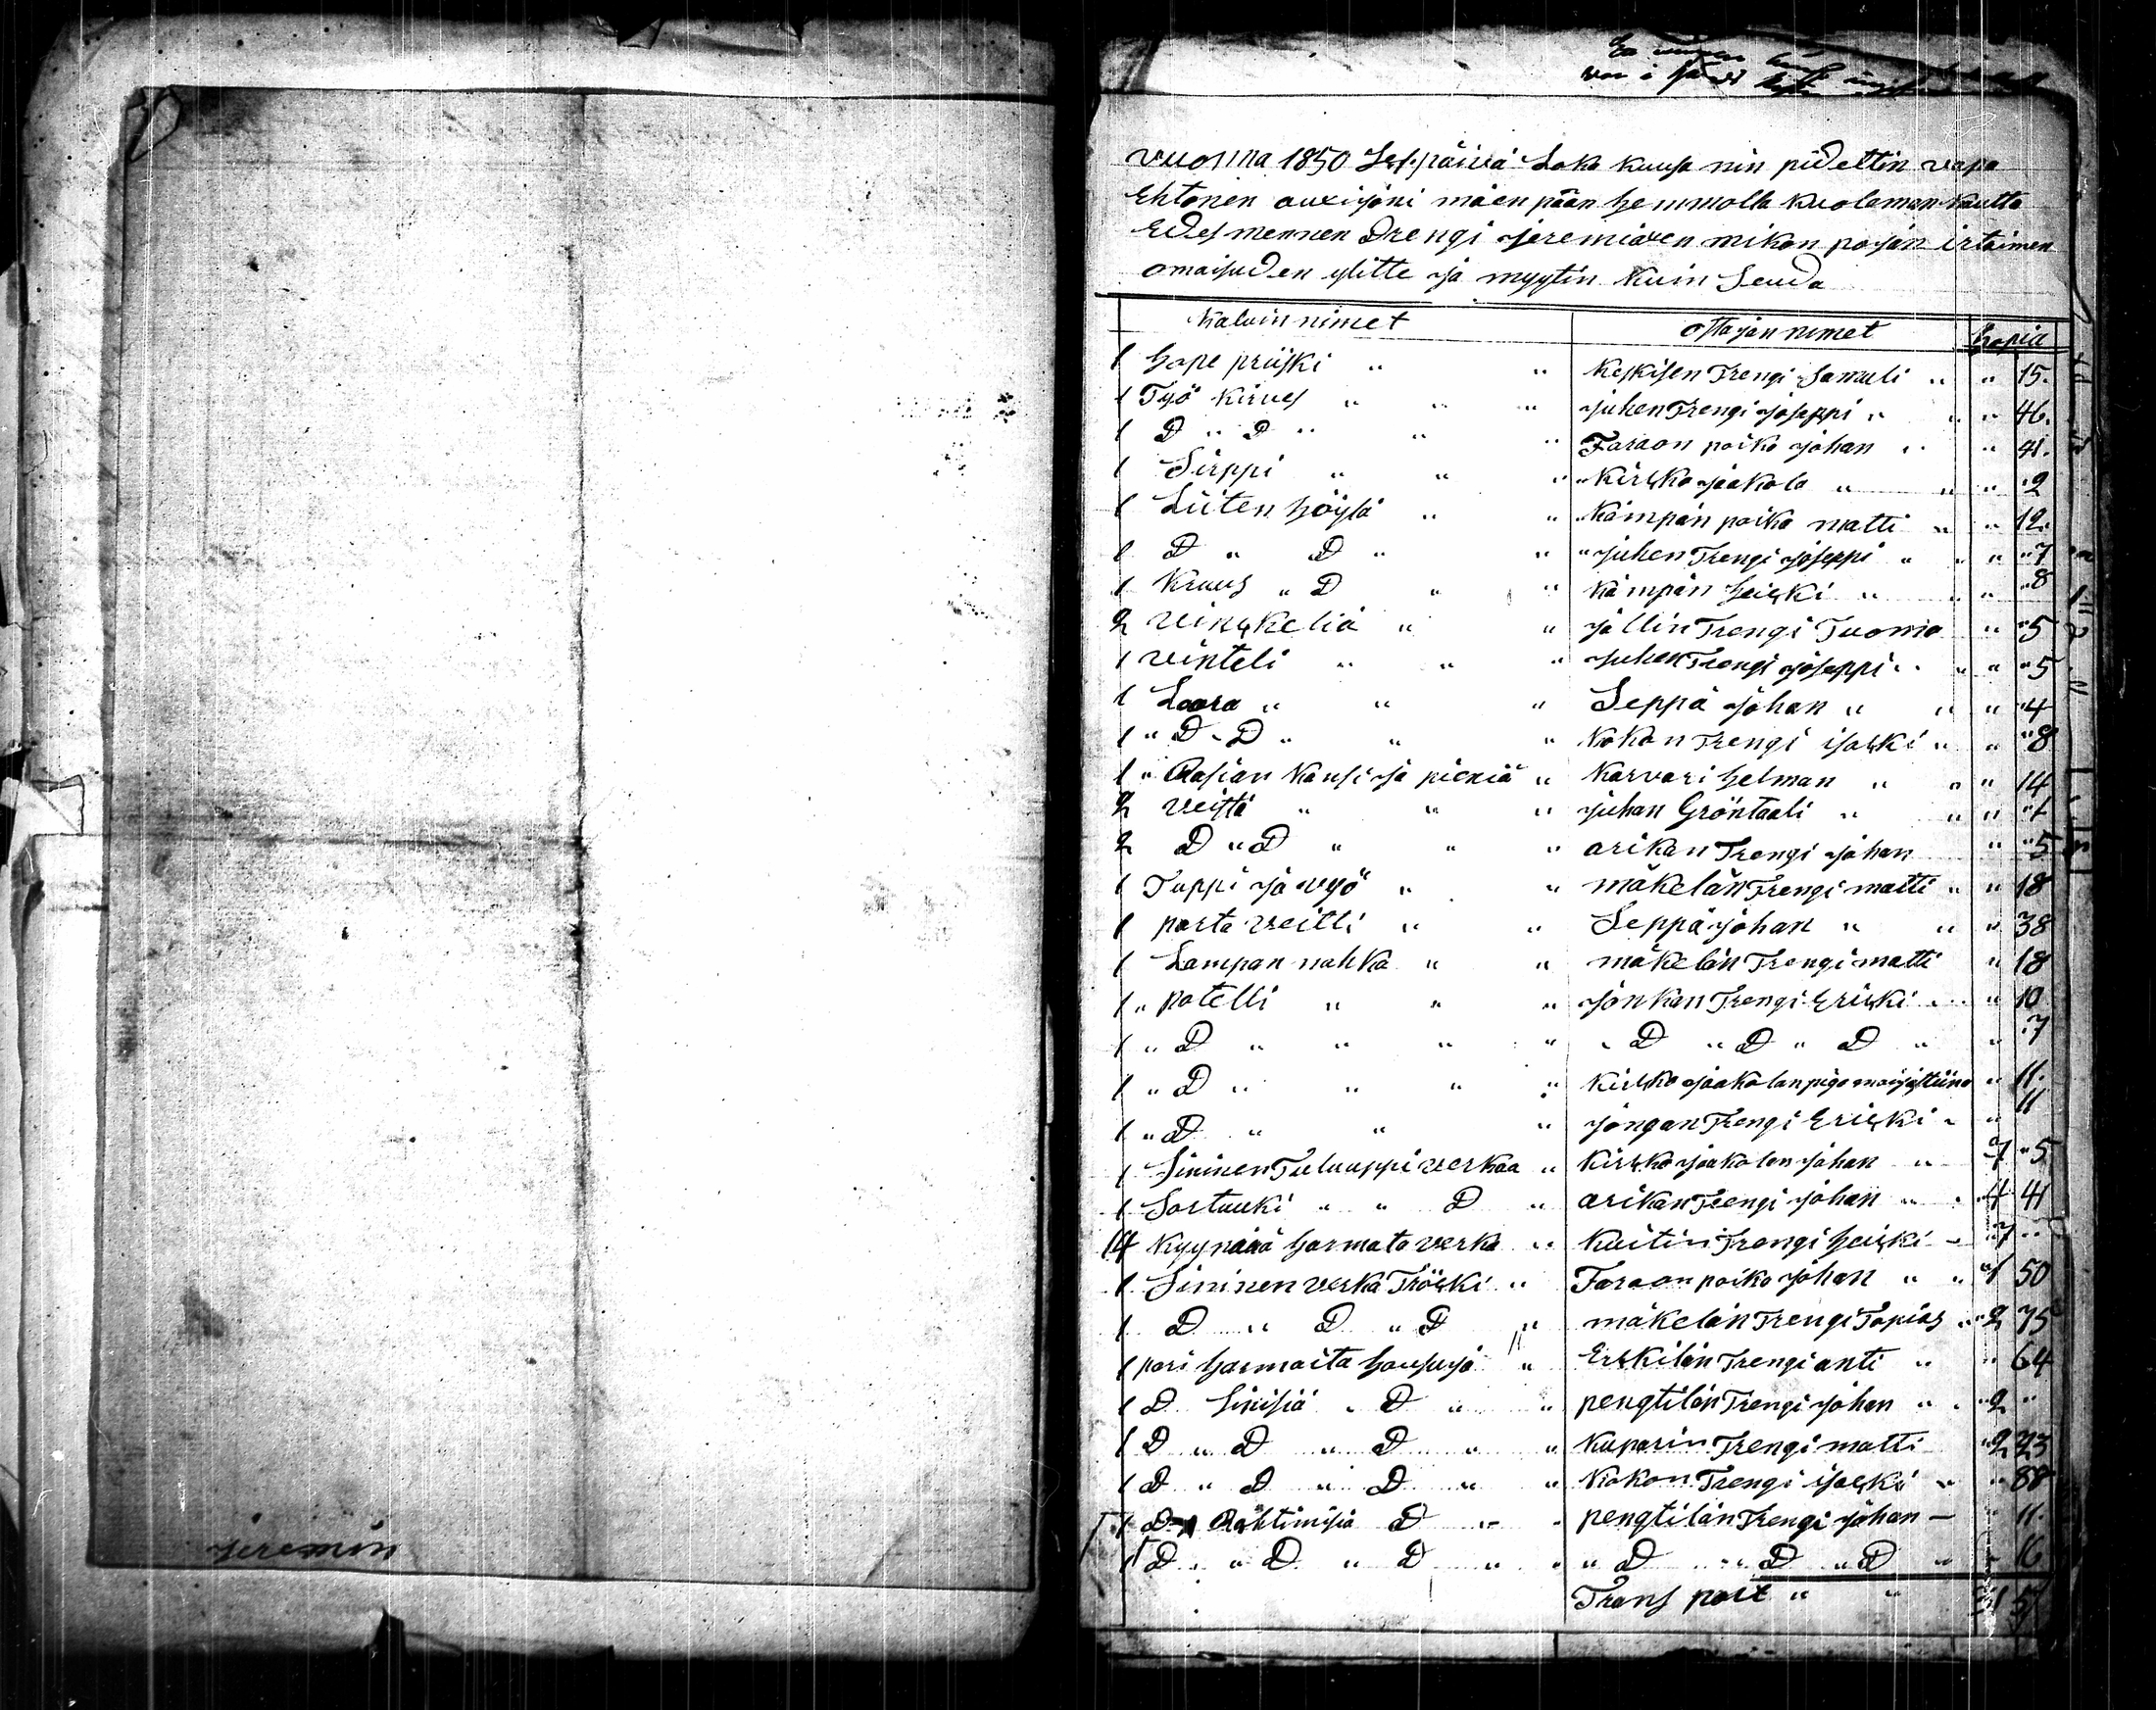 jeremin
vuonna 1850 päivä Loko kuusa nin pidettin vapa
Ehtonen auxijoni mäen pään hemmolla kuoleman kautta
Edes mennen Drengi jeremiaxen mikon pojan irtaimen
omaisuden ylitte ja myytin kuin Seuda
Kaluin nimet ottajan nimet hopia
1 hope priiski " " Keskisen Trengi Samuli " " 15.
1 Työ kirves " " " juhen Trengi joseppi " " " 46.
1 D " D " " " Faraon poika johan " " 41.
1 Sirppi " " " Kirkko jaakola " " " 2
1 Liiten höylä " " Kämpän poika matti " " 12.
1 D " D " " juhen Trengi joseppi " " " 7
1 Kruus " D " " Kämpän heikki " " " 8
2 vinkkeliä " " jällin Trengi Tuomo " 5
1 vinteli " " " juhen Trengi joseppi " " " 5
1 Loora " " " Seppä johan " " " 4
1 " D " D " " " Kokon Trengi isakki " " 8
1 " Rasian kansi ja pieniä " Karvari helman " " " 14
2 veistä " " " juhan Gröntaali " " " 1
2 D " D " " " arikan Trengi johan " " 5
1 Tuppi ja vyö " " mäkelän Trengi matti " " 18
1 parta veitti " " Seppä johan " " " 38
1 Lampan nahka " " mäkelän Trengi matti " 18
1 " potelli " " " jonkan Trengi Erikki " " 10
1 " D " " " " " D " D " D " " 7
1 " D " " " " Kirkko jaakolan piga maijastiina " 11.
1 " D " " " jongan Trengi Erikki " " 11
1 Sininen Tuluuppi verkaa " Kirkko jaakolan johan " 7 " 5
1 Sortuuki " " D " arikan Trengi johan " " 4 41
14 Kyynärä harmata verka " Kuitin Trengi heikki " 7 "
1 Sininen verka Tröiki " Faraon poika johan " " 1 50
1 D " D " D " mäkelän Trengi Topias " 2 75
1 pari harmaita housuja " Erkkilän Trengi anti " " 64
1 D Sinisiä " D " " pengtilän Trengi johan " " 2 "
1 D " D " D " " Kuparin Trengi matti " 2 23
1 D " D " D " " Kokon Trengi isakki " " 88
1 D " Rohtimisia D " " pengtilän Trengi johan — " 11.
1 D " " D " D " " " D " D " D " " 16
Trans port " "